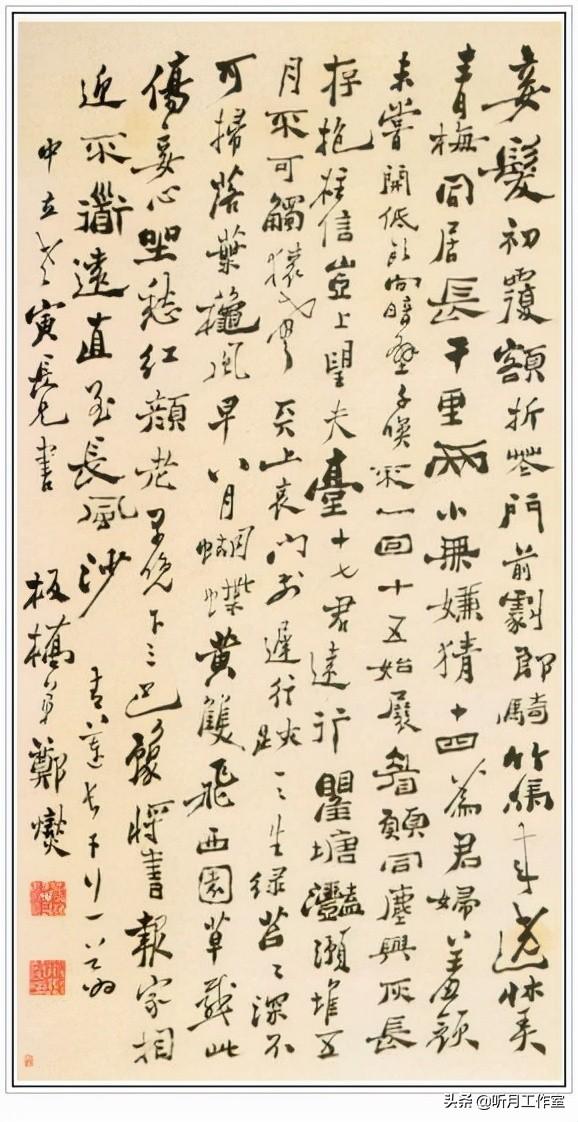 妾髮初覆額折花門前劇郎騎竹馬來遶牀弄
青梅同居長干里兩小無嫌猜十四為君婦羞顏
未嘗開低頭向暗壁千喚不一回十五始展眉願同塵與灰長
存抱柱信豈上望夫臺十七君遠行瞿塘灩澦堆五
月不可觸猿聲天上哀門前遲行跡一ミ生綠苔ミ深不
可掃落葉穐風早八月蝴蝶黃雙飛西園草感此
傷妾心坐愁紅顏老早晚下三巴預將書報家相
迎不道遠直至長風沙 青蓮長干行一
中立老寅長兄書 板橋弟鄭燮
头条 @听月工作室